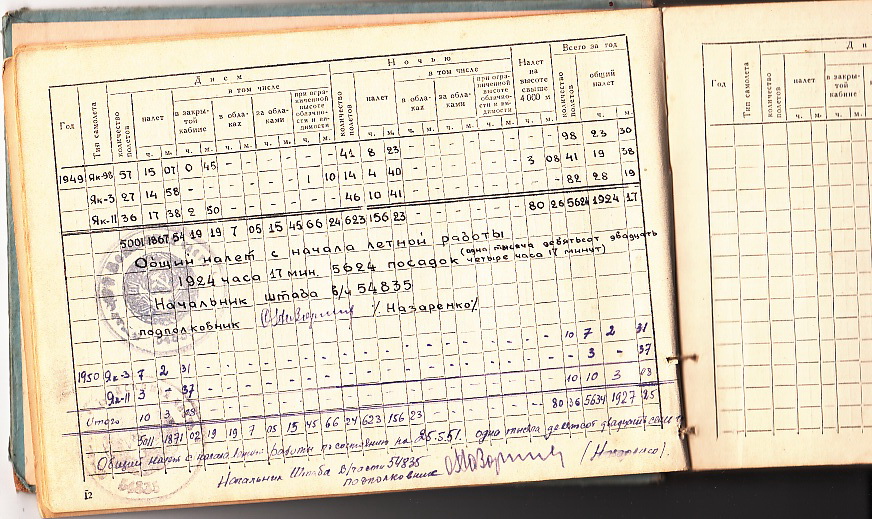 Днем Ночью Всего за год
Год Тип самолета количество полетов налет в том числе в закрытой кабине в облаках за облаками при ограниченной высоте облачности и видимости количество полетов налет в том числе в облаках за облаками при ограниченной высоте облачности и видимости Налет на высоте свыше 4000 м количество полетов общий налет
ч. м. ч. м. ч. м. ч. м. ч. м. ч. м. ч. м. ч. м. ч. м. ч. м. ч. м.
1949 Як-9В 57 15 07 0 45 - - - - - - 41 8 23 - - - - - - - - 98 23 30
Як-3 27 14 58 - - - - - - 1 10 14 4 40 - - - - - - 3 08 41 19 38
Як-11 36 17 38 2 50 - - - - - - 46 10 41 - - - - - - - - 82 28 19
5001 1867 54 19 19 7 05 15 45 66 24 623 156 23 - - - - - - 80 26 5624 1924 17
Общий налет с начала летной работы
1924 часа 17 мин. 5624 посадок (одна тысяча девятьсот двадцать четыре часа 17 минут)
Начальник штаба в/ч 54835
подполковник /Назаренко/
1950 Як-3 7 2 31 - - - - - - - - - - - - - - - - - - - 10 7 2 31
Як-11 3 - 37 - - - - - - - - - - - - - - - - - - - 3 - 37
Итого 10 3 08 - - - - - - - - - - - - - - - - - - - 10 10 3 08
5011 1871 02 19 19 7 05 15 45 66 24 623 156 23 - - - - - - 80 36 5634 1927 25
Общий налет с начала летной работы по состоянию на 25.5.51. одна тысяча девятьсот двадцать семь
Начальник Штаба в/части 54835
подполковник (Назаренко).
12
Год Тип самолета количество полетов налет в закрытой кабине
ч. м. ч. м.